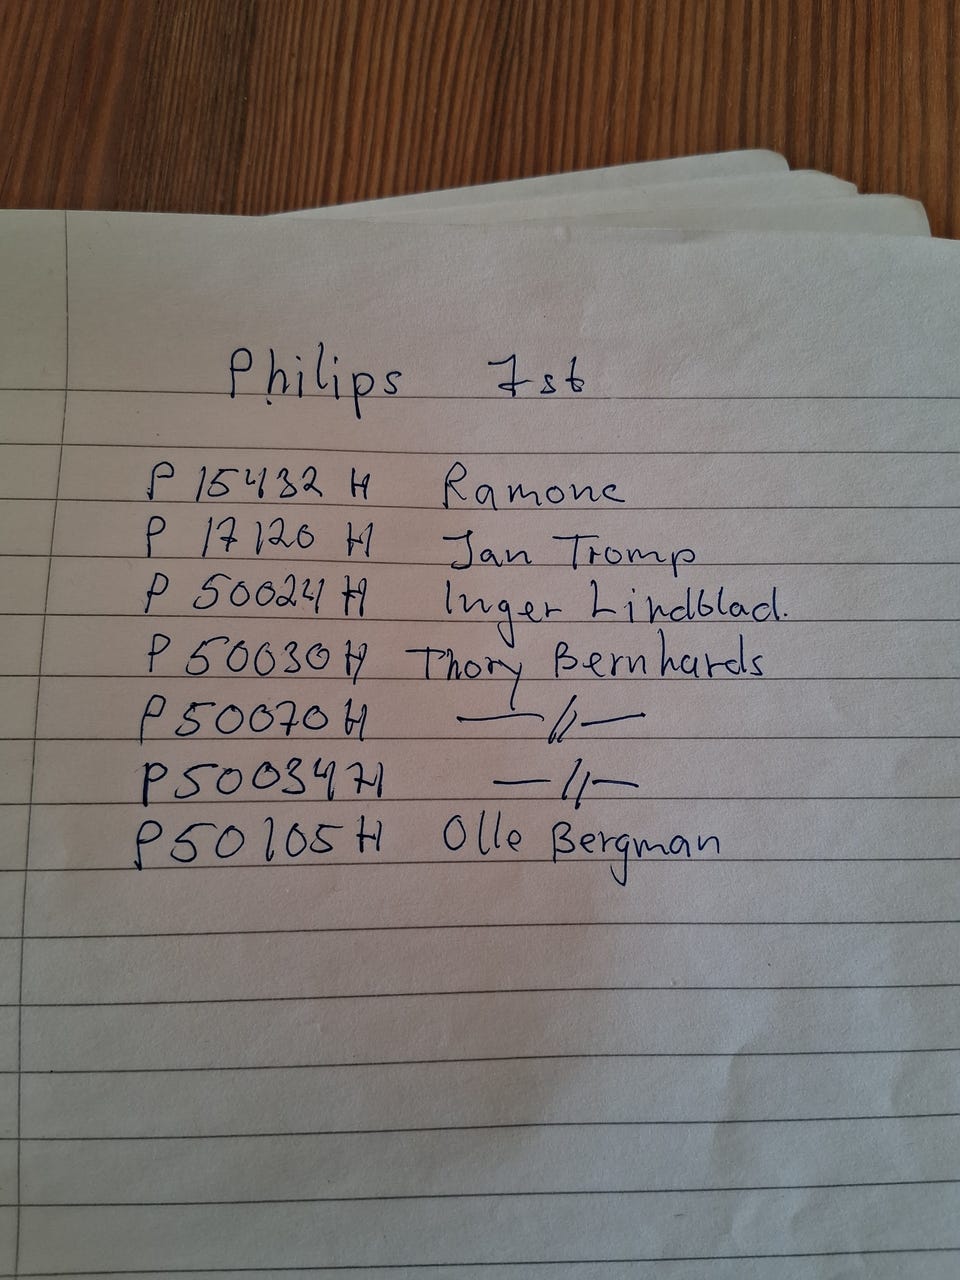 Philips 7st
P 15432 H Ramone
P 17120 H Jan Tromp
P 50024 H Inger Lindblad.
P 50030 H Thory Bernhards
P 50070 H —//—
P 50034 H —//—
P 50105 H Olle Bergman